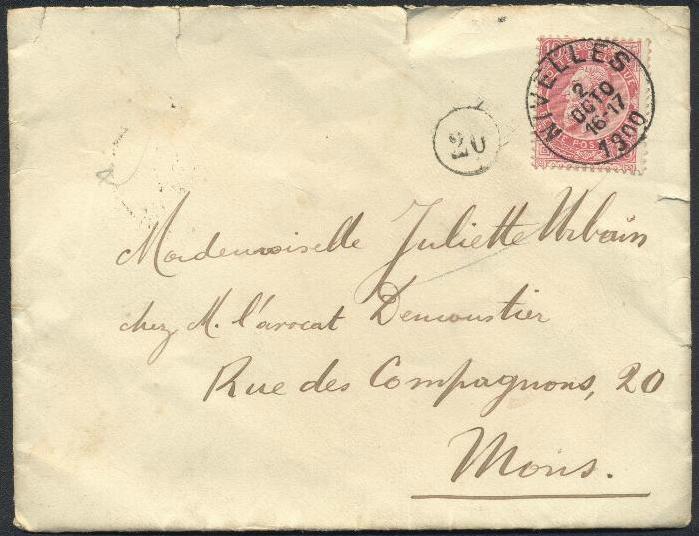 NIVELLES
2
OCTO
16-17
1900
20
Mademoiselle Juliette Urbain
chez M. l'avocat Demoustier
Rue des Compagnons, 20
Mons.